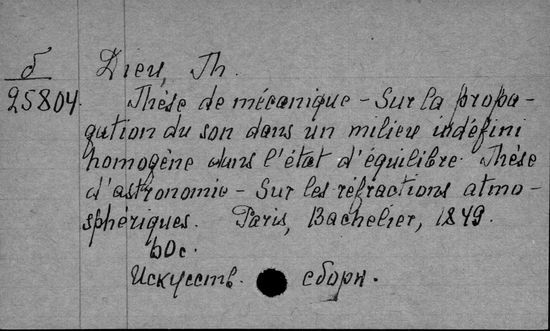 б Dieu, Th.
25804. Thèse de mécanique - Sur la propa-
gation du son dans un milieu indéfini
homogène dans l'état d'équilibre. Thèse
d'astronomie - Sur les réfractions atmo-
sphériques. Paris, Bachelier, 1849.
60c.
Искусств. сборн.